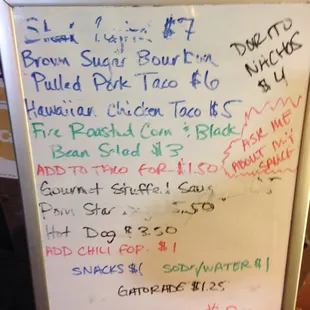 $7
Brown Sugar Bourbon
Pulled Pork Taco $6
Hawaiian Chicken Taco $5
Fire Roasted Corn & Black
Bean Salad $3
ADD TO TACO FOR $1.50
Gourmet Stuffed
Porn Star 5.50
Hot Dog $3.50
ADD CHILI FOR $1
SNACKS $1 SODA/WATER $1
GATORADE $1.25
DORITO
NACHOS
$4
ASK ME
ABOUT MY